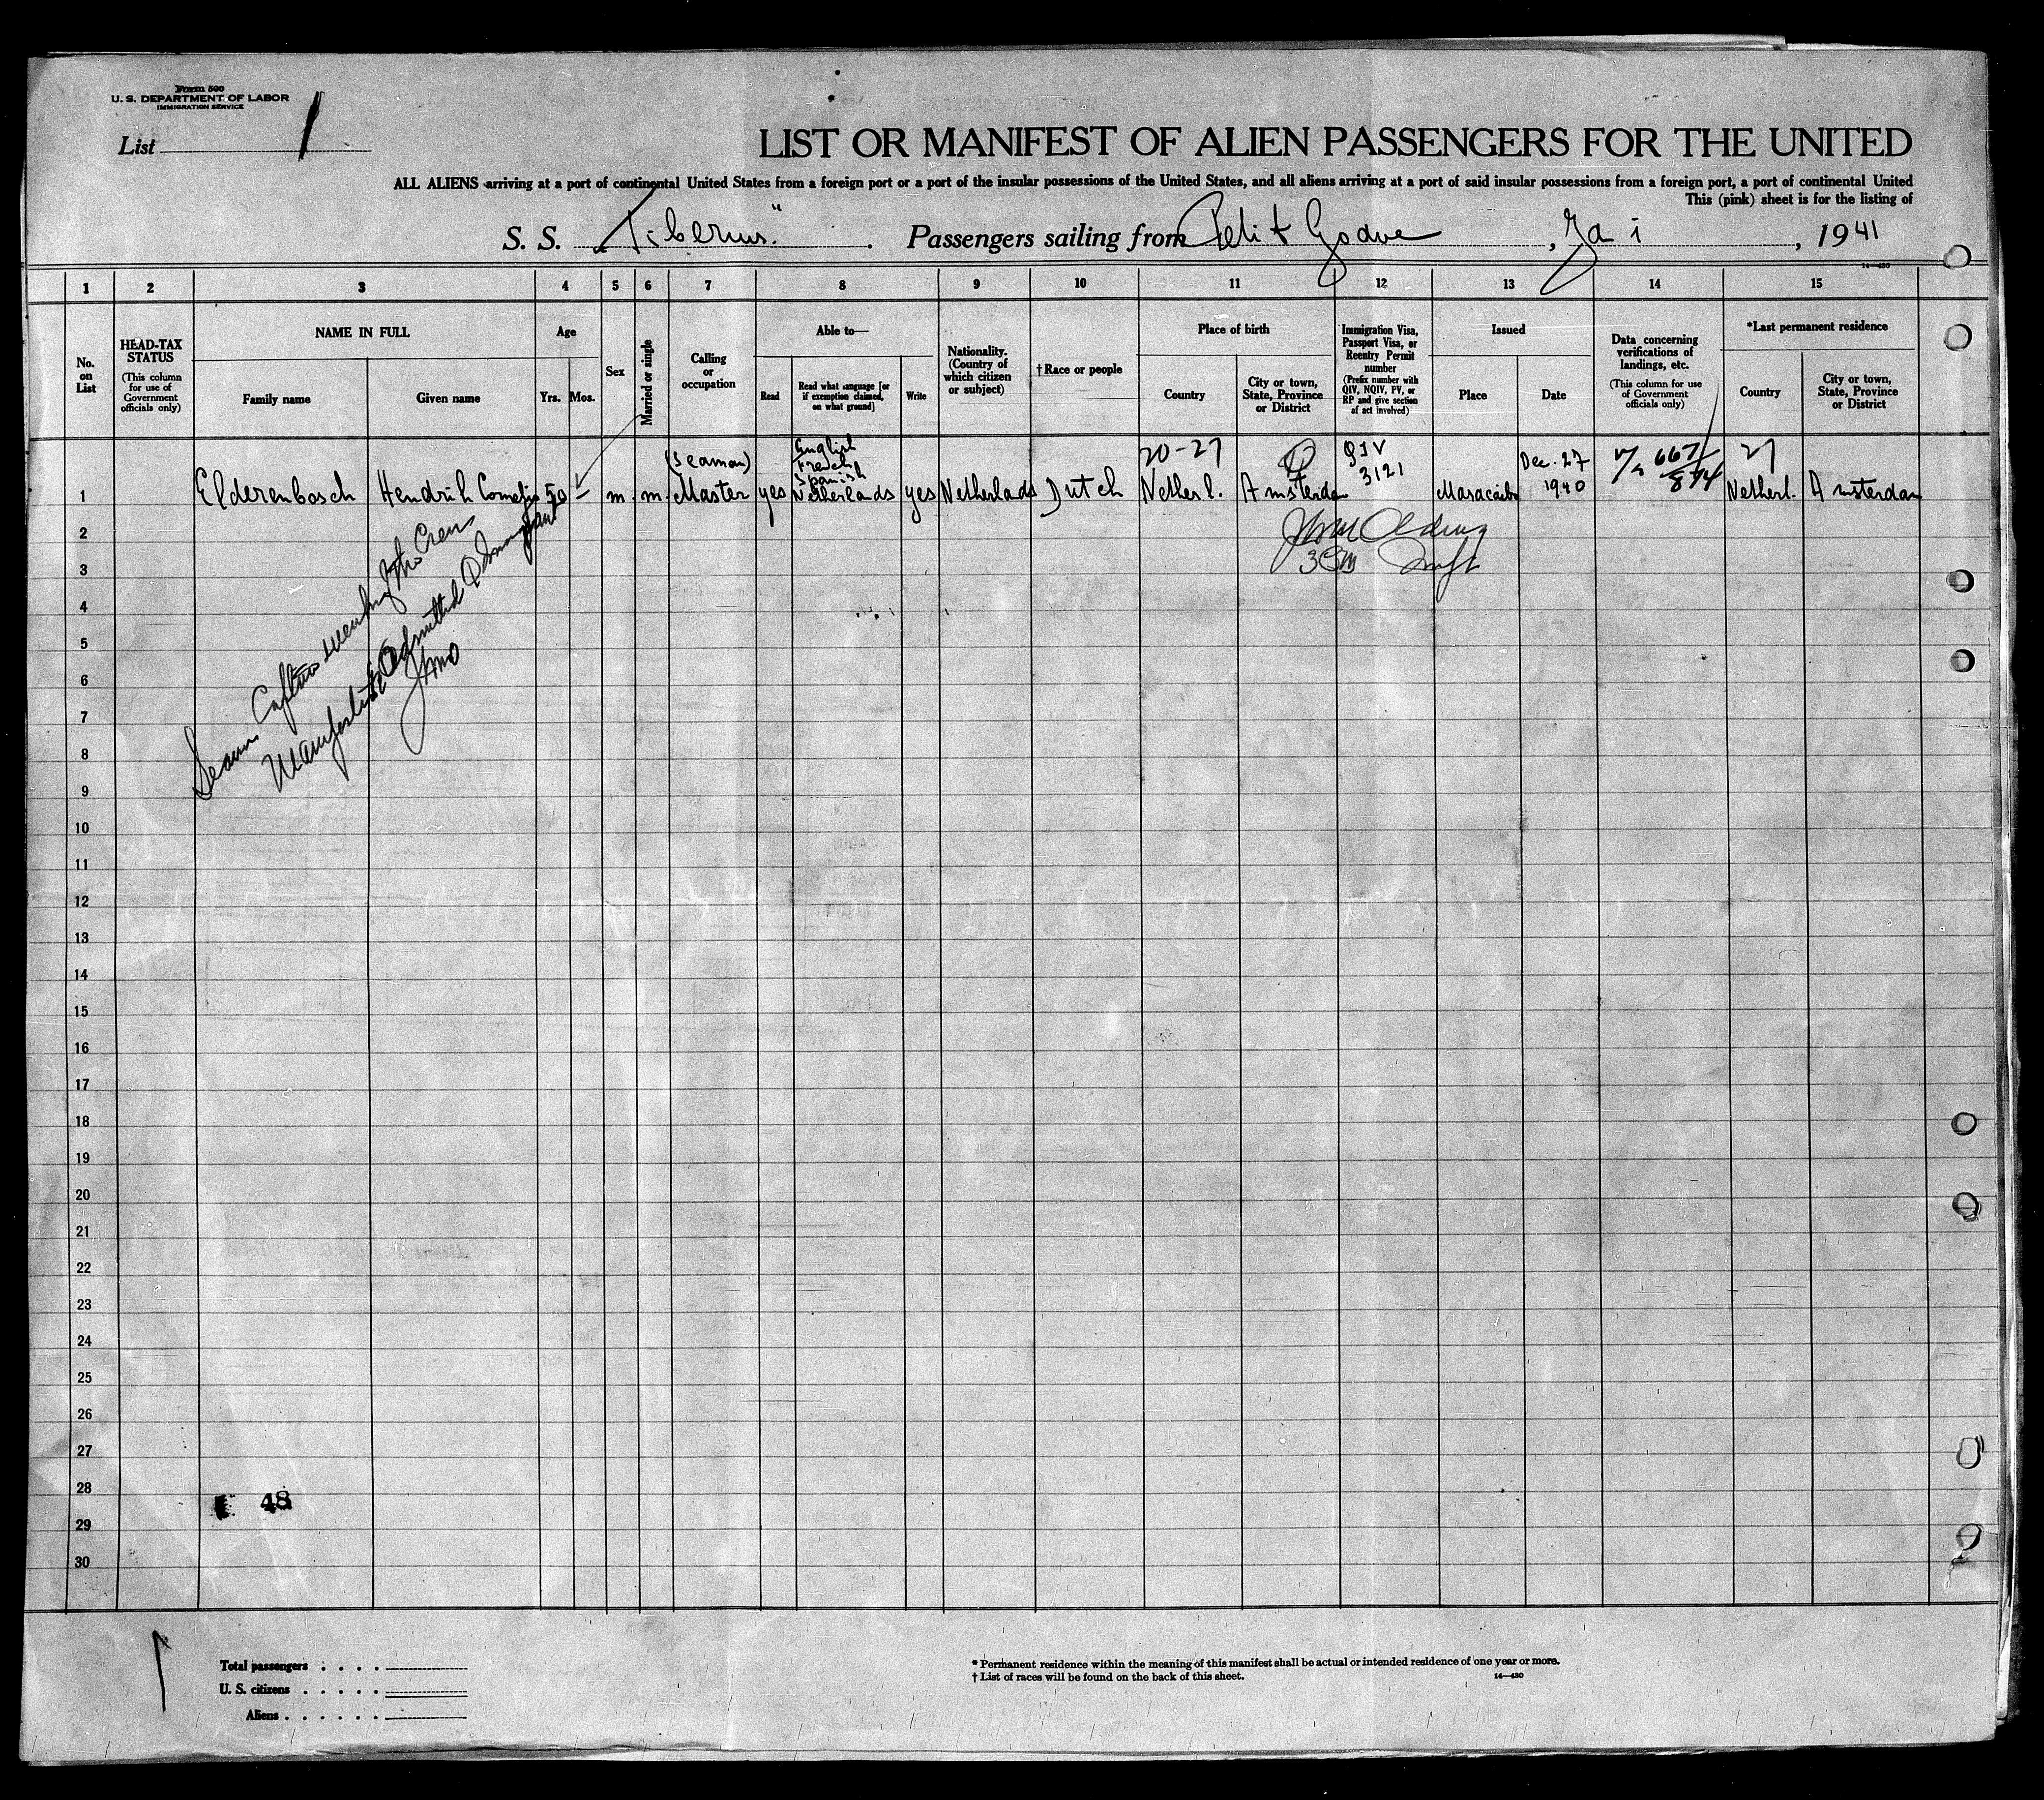 Form 500
U. S. DEPARTMENT OF LABOR
IMMIGRATION SERVICE
List 1
LIST OR MANIFEST OF ALIEN PASSENGERS FOR THE UNITED
ALL ALIENS arriving at a port of continental United States from a foreign port or a port of the insular possessions of the United States, and all aliens arriving at a port of said insular possessions from a foreign port, a port of continental United
This (pink) sheet is for the listing of
S. S. "Tiberius" Passengers sailing from Petit Goave, 19 41
14—430
1 2 3 4 5 6 7 8 9 10 11 12 13 14 15
No. on List
HEAD-TAX STATUS (This column for use of Government officials only)
NAME IN FULL
Family name Given name
Age
Yrs. Mos.
Sex
Married or single
Calling or occupation
Able to—
Read Read what language [or if exemption claimed, on what ground] Write
Nationality. (Country of which citizen or subject)
†Race or people
Place of birth
Country City or town, State, Province or District
Immigration Visa, Passport Visa, or Reentry Permit number (Prefix number with QIV, NQIV, PV, or RP and give section of act involved)
Issued
Place Date
Data concerning verifications of landings, etc. (This column for use of Government officials only)
*Last permanent residence
Country City or town, State, Province or District
(Seaman) English French Spanish 20-27 QIV 3121 Dec. 27 1940 667/874 27
1 Elderenbosch Hendrik Cornelis 50 m. m. Master yes Netherlands yes Netherlands Dutch Netherl. Amsterdam Maracaibo Netherl. Amsterdam
2
3
4
5
6
7
8
9
10
11
12
13
14
15
16
17
18
19
20
21
22
23
24
25
26
27
28
29
30
48
Total passengers . . . .
U. S. citizens . . . . .
Aliens . . . . . .
* Permanent residence within the meaning of this manifest shall be actual or intended residence of one year or more.
† List of races will be found on the back of this sheet. 14—430